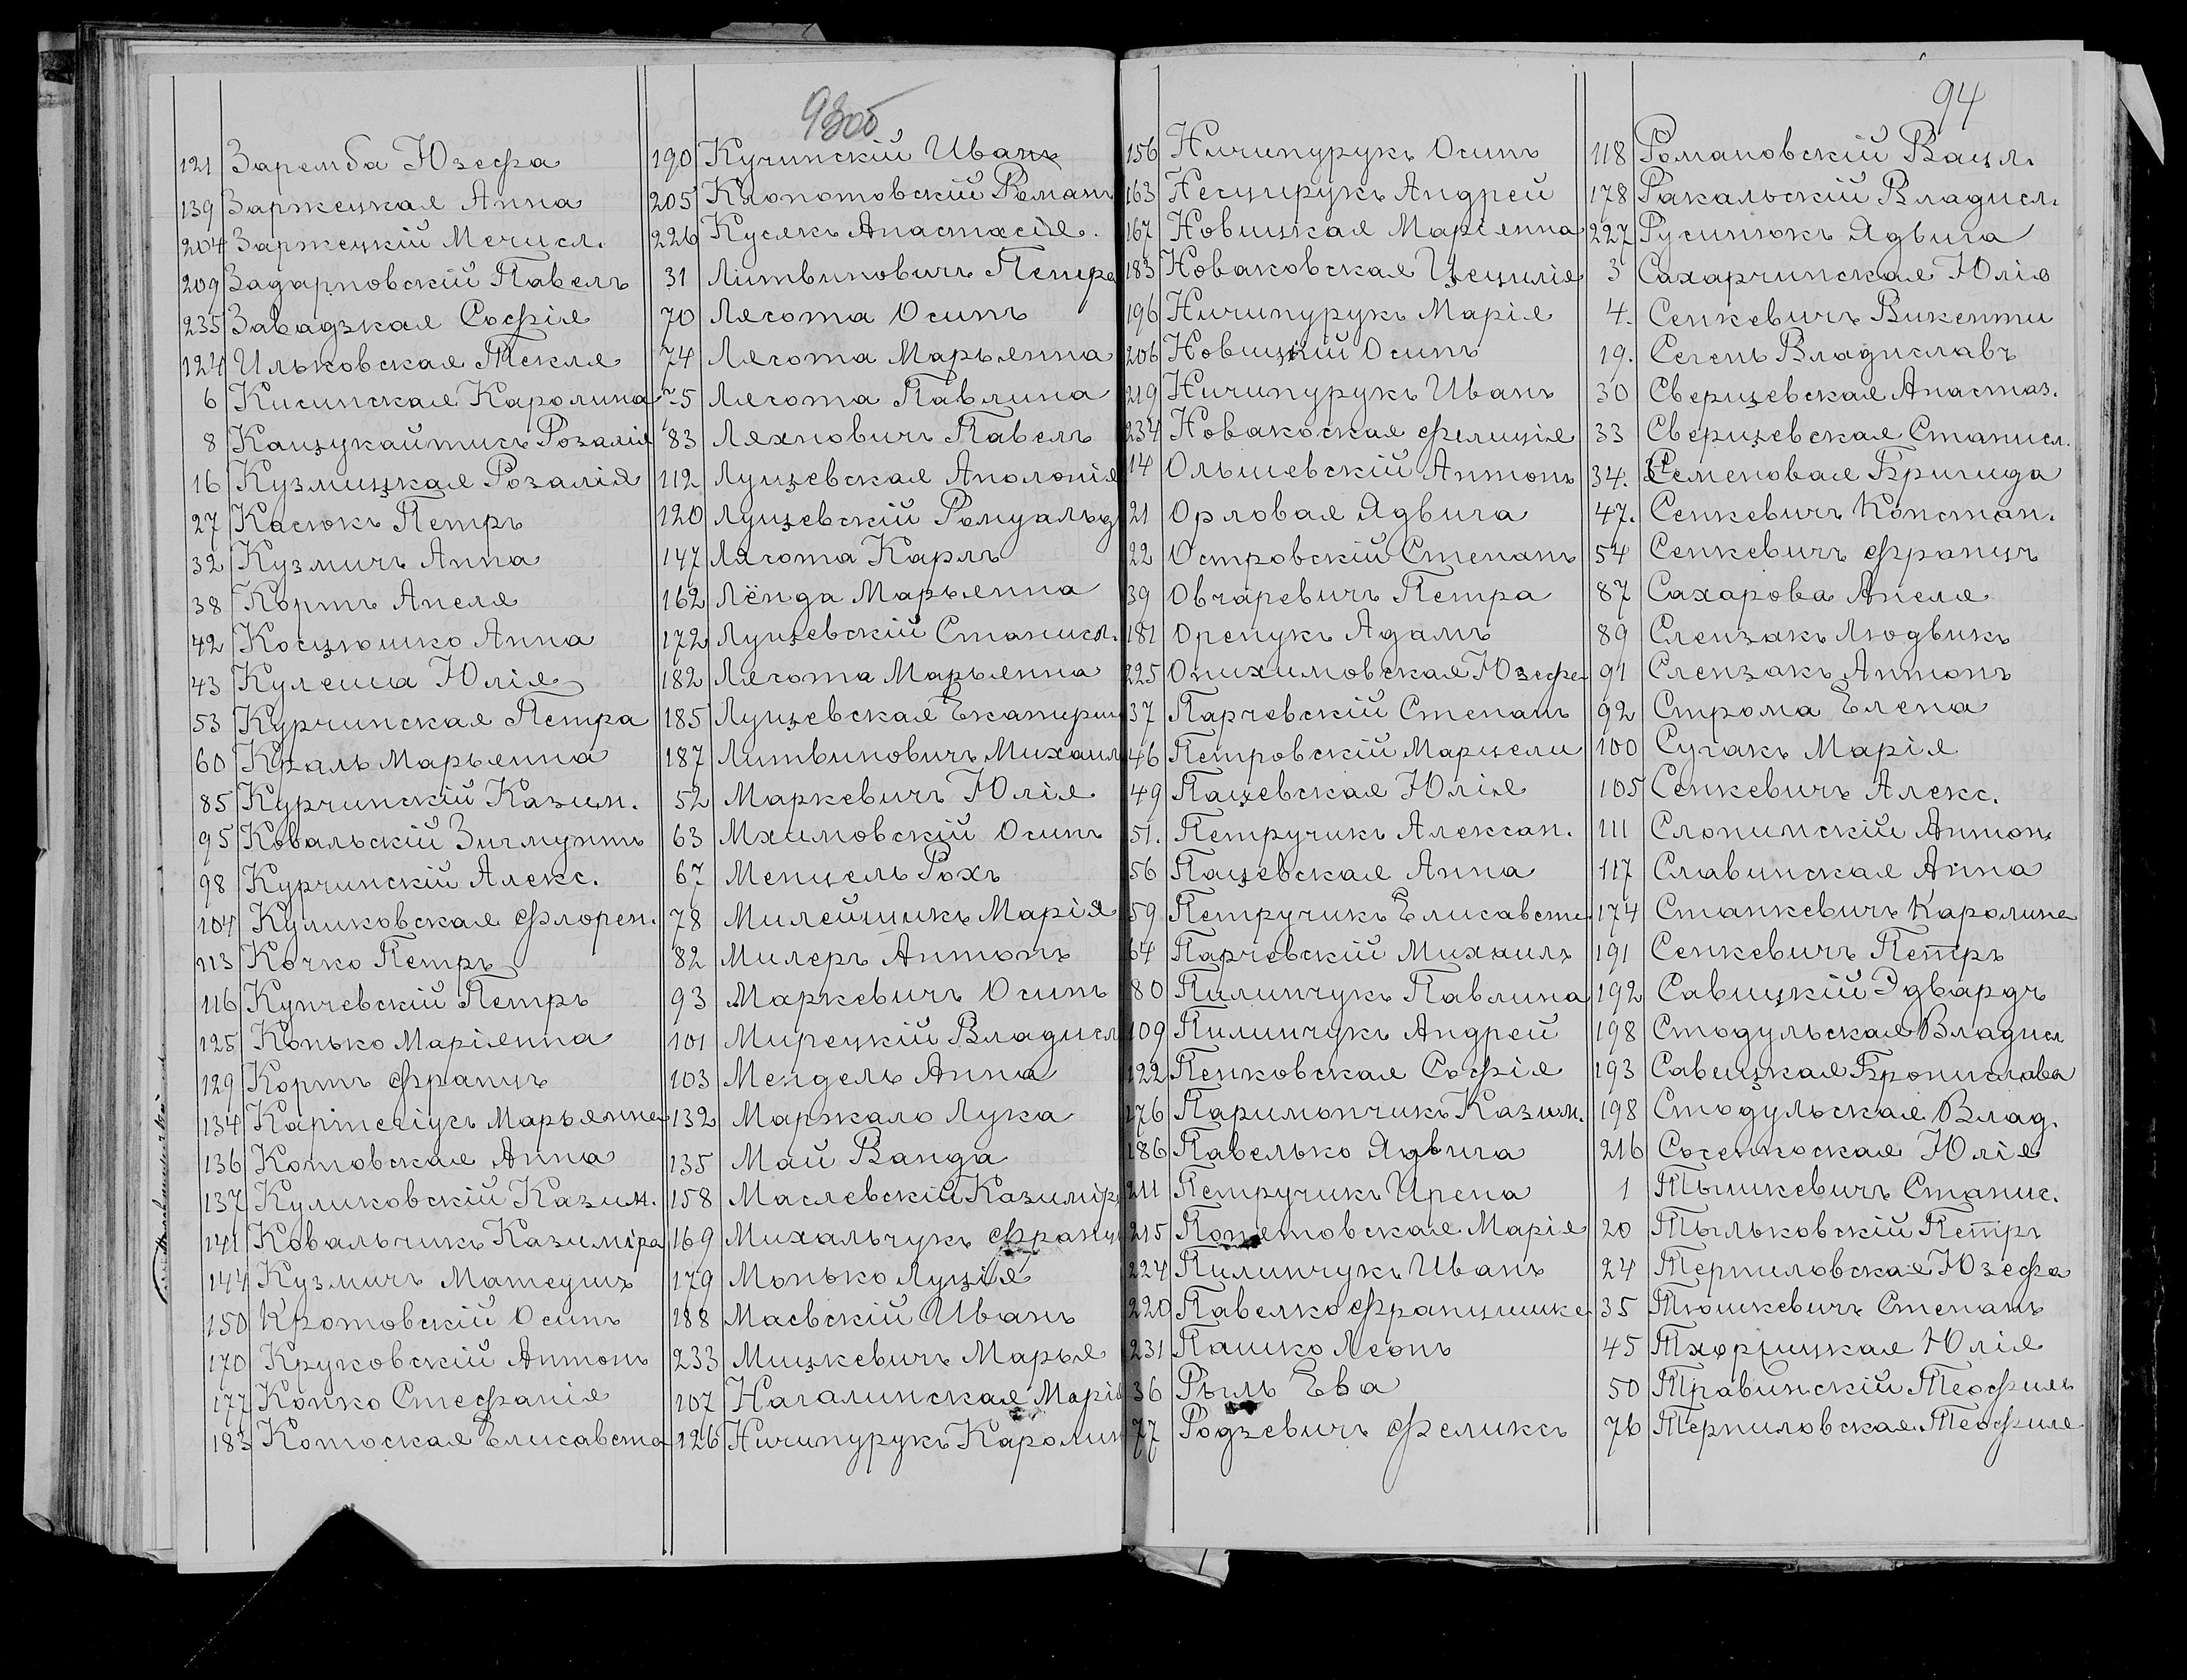 93об
121 Заремба Юзефа
139 Заржецкая Анна
204 Заржецкій Мечисл.
209 Задарновскій Павелъ
235 Завадзкая Софія
124 Ильковская Текля
6 Кисинская Каролина
8 Кацукайтись Розалія
16 Кузмицкая Розалія
27 Касюкъ Петръ
32 Кузмичъ Анна
38 Кортъ Анеля
42 Косцюшко Анна
43 Кулеша Юлія
53 Курчинская Петра
60 Краль Марьянна
85 Курчинскій Казим.
95 Ковальскій Зигмунтъ
98 Курчинскій Алекс.
104 Куликовская Флорен.
113 Кочко Петръ
116 Купчевскій Петръ
125 Конько Маріянна
129 Кортъ Францъ
134 Марьянна
136 Котовская Анна
137 Куликовскій Казим.
141 Ковальчикъ Казиміра
144 Кузмичъ Матеушъ
150 Кротовскій Осипъ
170 Круковскій Антонъ
177 Конко Стефанія
183 Котоская Елисавета
190 Кучинскій Иванъ
205 Клопотовскій Романъ
226 Кусякъ Анастасія.
31 Литвиновичъ Петра
70 Лясота Осипъ
74 Лясота Марьянна
75 Лясота Павлина
83 Ляхновичъ Павелъ
112 Луцевская Аполонія
120 Луцевскій Ромуальд
147 Лясота Карлъ
162 Лёнда Марьянна
172 Луцевскій Станисл.
182 Лясота Марьянна
185 Луцевская Екатерин
187 Литвиновичъ Михаил
52 Маркевичъ Юлія
63 Мхимовскій Осипъ
67 Менцель Рохъ
78 Милейшикъ Марія
82 Милеръ Антонъ
93 Маркевичъ Осипъ
101 Мирецкій Владисл
103 Мендель Анна
132 Маржало Лука
135 Май Ванда
158 Маслевскій Казиміръ
169 Михальчукъ Франц
179 Монько Луція
188 Маевскій Иванъ
233 Мицкевичъ Марья
107 Нагалинская Марія
126 Ничипурукъ Каролин
94
156 Ничипурукъ Осипъ
163 Несцирукъ Андрей
167 Новицкая Маріянна
183 Новаковская Цецилія
196 Ничипурукъ Марія
206 Новицкій Осипъ
219 Ничипурукъ Иванъ
234 Новакоская Фелиція
14 Ольшевскій Антонъ
21 Орловая Ядвига
22 Островскій Степанъ
39 Овчаревичъ Петра
181 Оренукъ Адамъ
225 Онихимовская Юзефа
37 Парчевскій Степанъ
46 Петровскій Марцели
49 Пацевская Юлія
51. Петручикъ Алексан.
56 Пацевская Анна
59 Петручикъ Елисавета
64 Парчевскій Михаилъ
80 Пилипчукъ Павлина
109 Пилипчукъ Андрей
122 Пенковская Софія
176 Паримончикъ Казим.
186 Павелько Ядвига
211 Петручикъ Ирена
215 Марія
224 Пилипчукъ Иванъ
220 Павелко Францишка
231 Пашко Леонъ
36 Рыль Ева
77 Родзевичъ Феликсъ
118 Романовскій Вацл.
178 Ракальскій Владисл.
227 Русинюкъ Ядвига
3 Сахарчинская Юлія
4. Сенкевичъ Викенти
19. Сегень Владиславъ
30 Сверщевская Анастаз.
33 Сверщевская Станисл.
34. Семеновая Бригида
47. Сенкевичъ Констан.
54 Сенкевичъ Францъ
87 Сахарова Анеля
89 Слензакъ Людвикъ
91 Слензакъ Антонъ
92 Строма Елена
100 Сугакъ Марія
105 Сенкевичъ Алекс.
111 Слонимскій Антонъ
117 Славинская Анна
174 Станкевичъ Каролина
191 Сенкевичъ Петръ
192 Савицкій Эдвардъ
198 Стодульская Владисл
193 Савицкая Бронислава
198 Стодульская Влад.
216 Сосенкоская Юлія
1 Тышкевичъ Станис.
20 Тыльковскій Петръ
24 Терпиловская Юзефа
35 Тюшкевичъ Степанъ
45 Тхоржицкая Юлія
50 Травинскій Теофиль
76 Терпиловская Теофиля